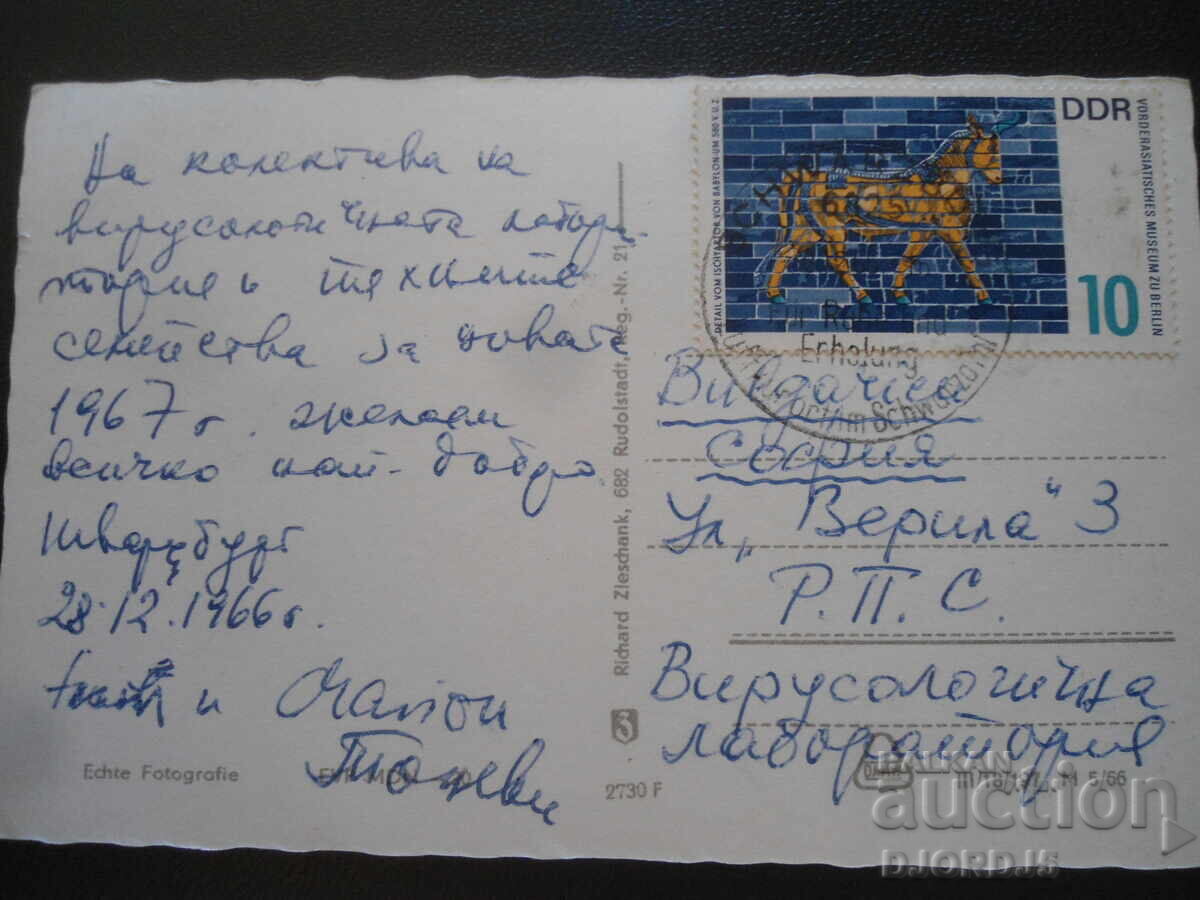 На колектива на
вирусологичната лабора-
тория и техните
семейства за новата
1967 г. желаем
всичко най-добро
Шварцбург
28.12.1966 г.
и
Тошеви
Echte Fotografie
Richard Zieschank, 682 Rudolstadt, Reg.-Nr. 21
2730 F
DDR
VORDERASIATISCHES MUSEUM ZU BERLIN
DETAIL VOM ISCHTARTOR VON BABYLON UM 580 V. U. Z.
10
Erholung
България
София
Ул. „Верила“ 3
Р.П.С.
Вирусологична
лаборатория
M 5/66
BALKAN
auction
DJORDJ5